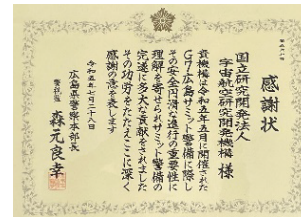 感謝状
国立研究開発法人
宇宙航空研究開発機構 様
貴機構は令和五年五月に開催された
G7広島サミット警備に際し
その安全円滑な遂行の重要性に
理解を寄せられサミット警備の
完遂に多大な貢献をされました
その功労をたたえここに深く
感謝の意を表します
令和五年七月二十八日
広島県警察本部長
警視監 森元良幸